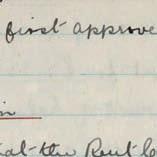 first approve
in
at the Rent